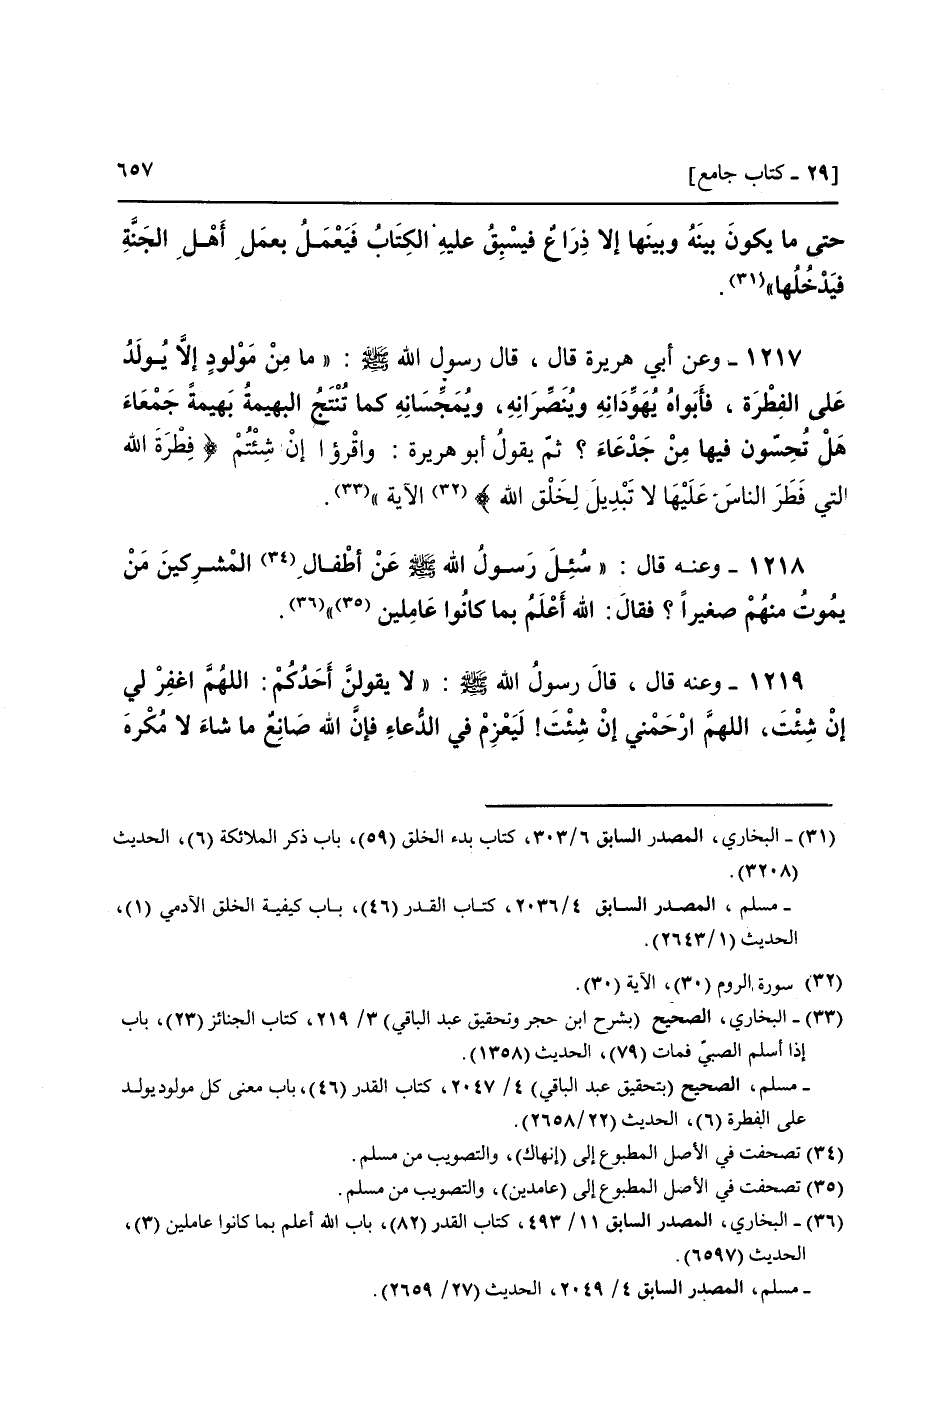 [٢٩ ـ كتاب جامع] ٦٥٧
حتى ما يكونَ بينَهُ وبينَها إلا ذِرَاعٌ فيسْبِقُ عليهِ الكِتَابُ فَيَعْمَـلُ بعمَلِ أَهْـلِ الجَنَّةِ
فيَدْخُلُها»(٣١).
١٢١٧ ـ وعن أبي هريرة قال ، قال رسول الله ﷺ : « ما مِنْ مَوْلودٍ إلَّا يُـولَدُ
عَلى الفِطْرَة ، فأَبَواهُ يُهَوِّدَانِهِ ويُنَصِّرَانِهِ، ويُمَجِّسَانِهِ كما تُنْتَجُ البهيمةُ بَهيمةً جَمْعَاءَ
هَلْ تُحِسّون فيها مِنْ جَدْعَاءَ ؟ ثمّ يقولُ أبو هريرة : واقْرؤ ا إنْ شِئْتُمْ ﴿ فِطْرَةَ الله
التي فَطَرَ الناسَ عَلَيْهَا لا تَبْدِيلَ لِخَلْق الله ﴾ (٣٢) الآية »(٣٣).
١٢١٨ ـ وعنـه قال : « سُئِـلَ رَسـولُ الله ﷺ عَنْ أطْفـال(٣٤) المْشـركينَ مَنْ
يمُوتُ منهُمْ صغيراً ؟ فقالَ: الله أَعْلَمُ بما كانُوا عَامِلين (٣٥)»(٣٦).
١٢١٩ ـ وعنه قال ، قالَ رسولُ الله ﷺ : « لا يقولنَّ أَحَدُكُمْ: اللهُمَّ اغفِرْ لي
إنْ شِئْتَ، اللهمَّ ارْحَمْني إنْ شِئْتَ! لَيَعْزِمْ في الدُّعاءِ فإنَّ الله صَانِعٌ ما شاءَ لا مُكْرهَ
(٣١) ـ البخاري، المصدر السابق ٣٠٣/٦، كتاب بدء الخلق (٥٩)، باب ذكر الملائكة (٦)، الحديث
(٣٢٠٨).
ـ مسلم ، المصـدر السـابق ٢٠٣٦/٤، كتـاب القـدر (٤٦)، بـاب كيفيـة الخلق الآدمي (١)،
الحديث (٢٦٤٣/١).
(٣٢) سورة الروم (٣٠)، الآية (٣٠).
(٣٣) ـ البخاري، الصحيح (بشرح ابن حجر وتحقيق عبد الباقي) ٣/ ٢١٩، كتاب الجنائز (٢٣)، باب
إذا أسلم الصبيّ فمات (٧٩)، الحديث (١٣٥٨).
ـ مسلم، الصحيح (بتحقيق عبد الباقي) ٤/ ٢٠٤٧، كتاب القدر (٤٦)، باب معنى كل مولود يولـد
على الفطرة (٦)، الحديث (٢٦٥٨/٢٢).
(٣٤) تصحفت في الأصل المطبوع إلى (إنهاك)، والتصويب من مسلم.
(٣٥) تصحفت في الأصل المطبوع إلى (عامدين)، والتصويب من مسلم.
(٣٦) ـ البخاري، المصدر السابق ١١/ ٤٩٣، كتاب القدر (٨٢)، باب الله أعلم بما كانوا عاملين (٣)،
الحديث (٦٥٩٧).
ـ مسلم، المصدر السابق ٤/ ٢٠٤٩، الحديث (٢٧/ ٢٦٥٩).